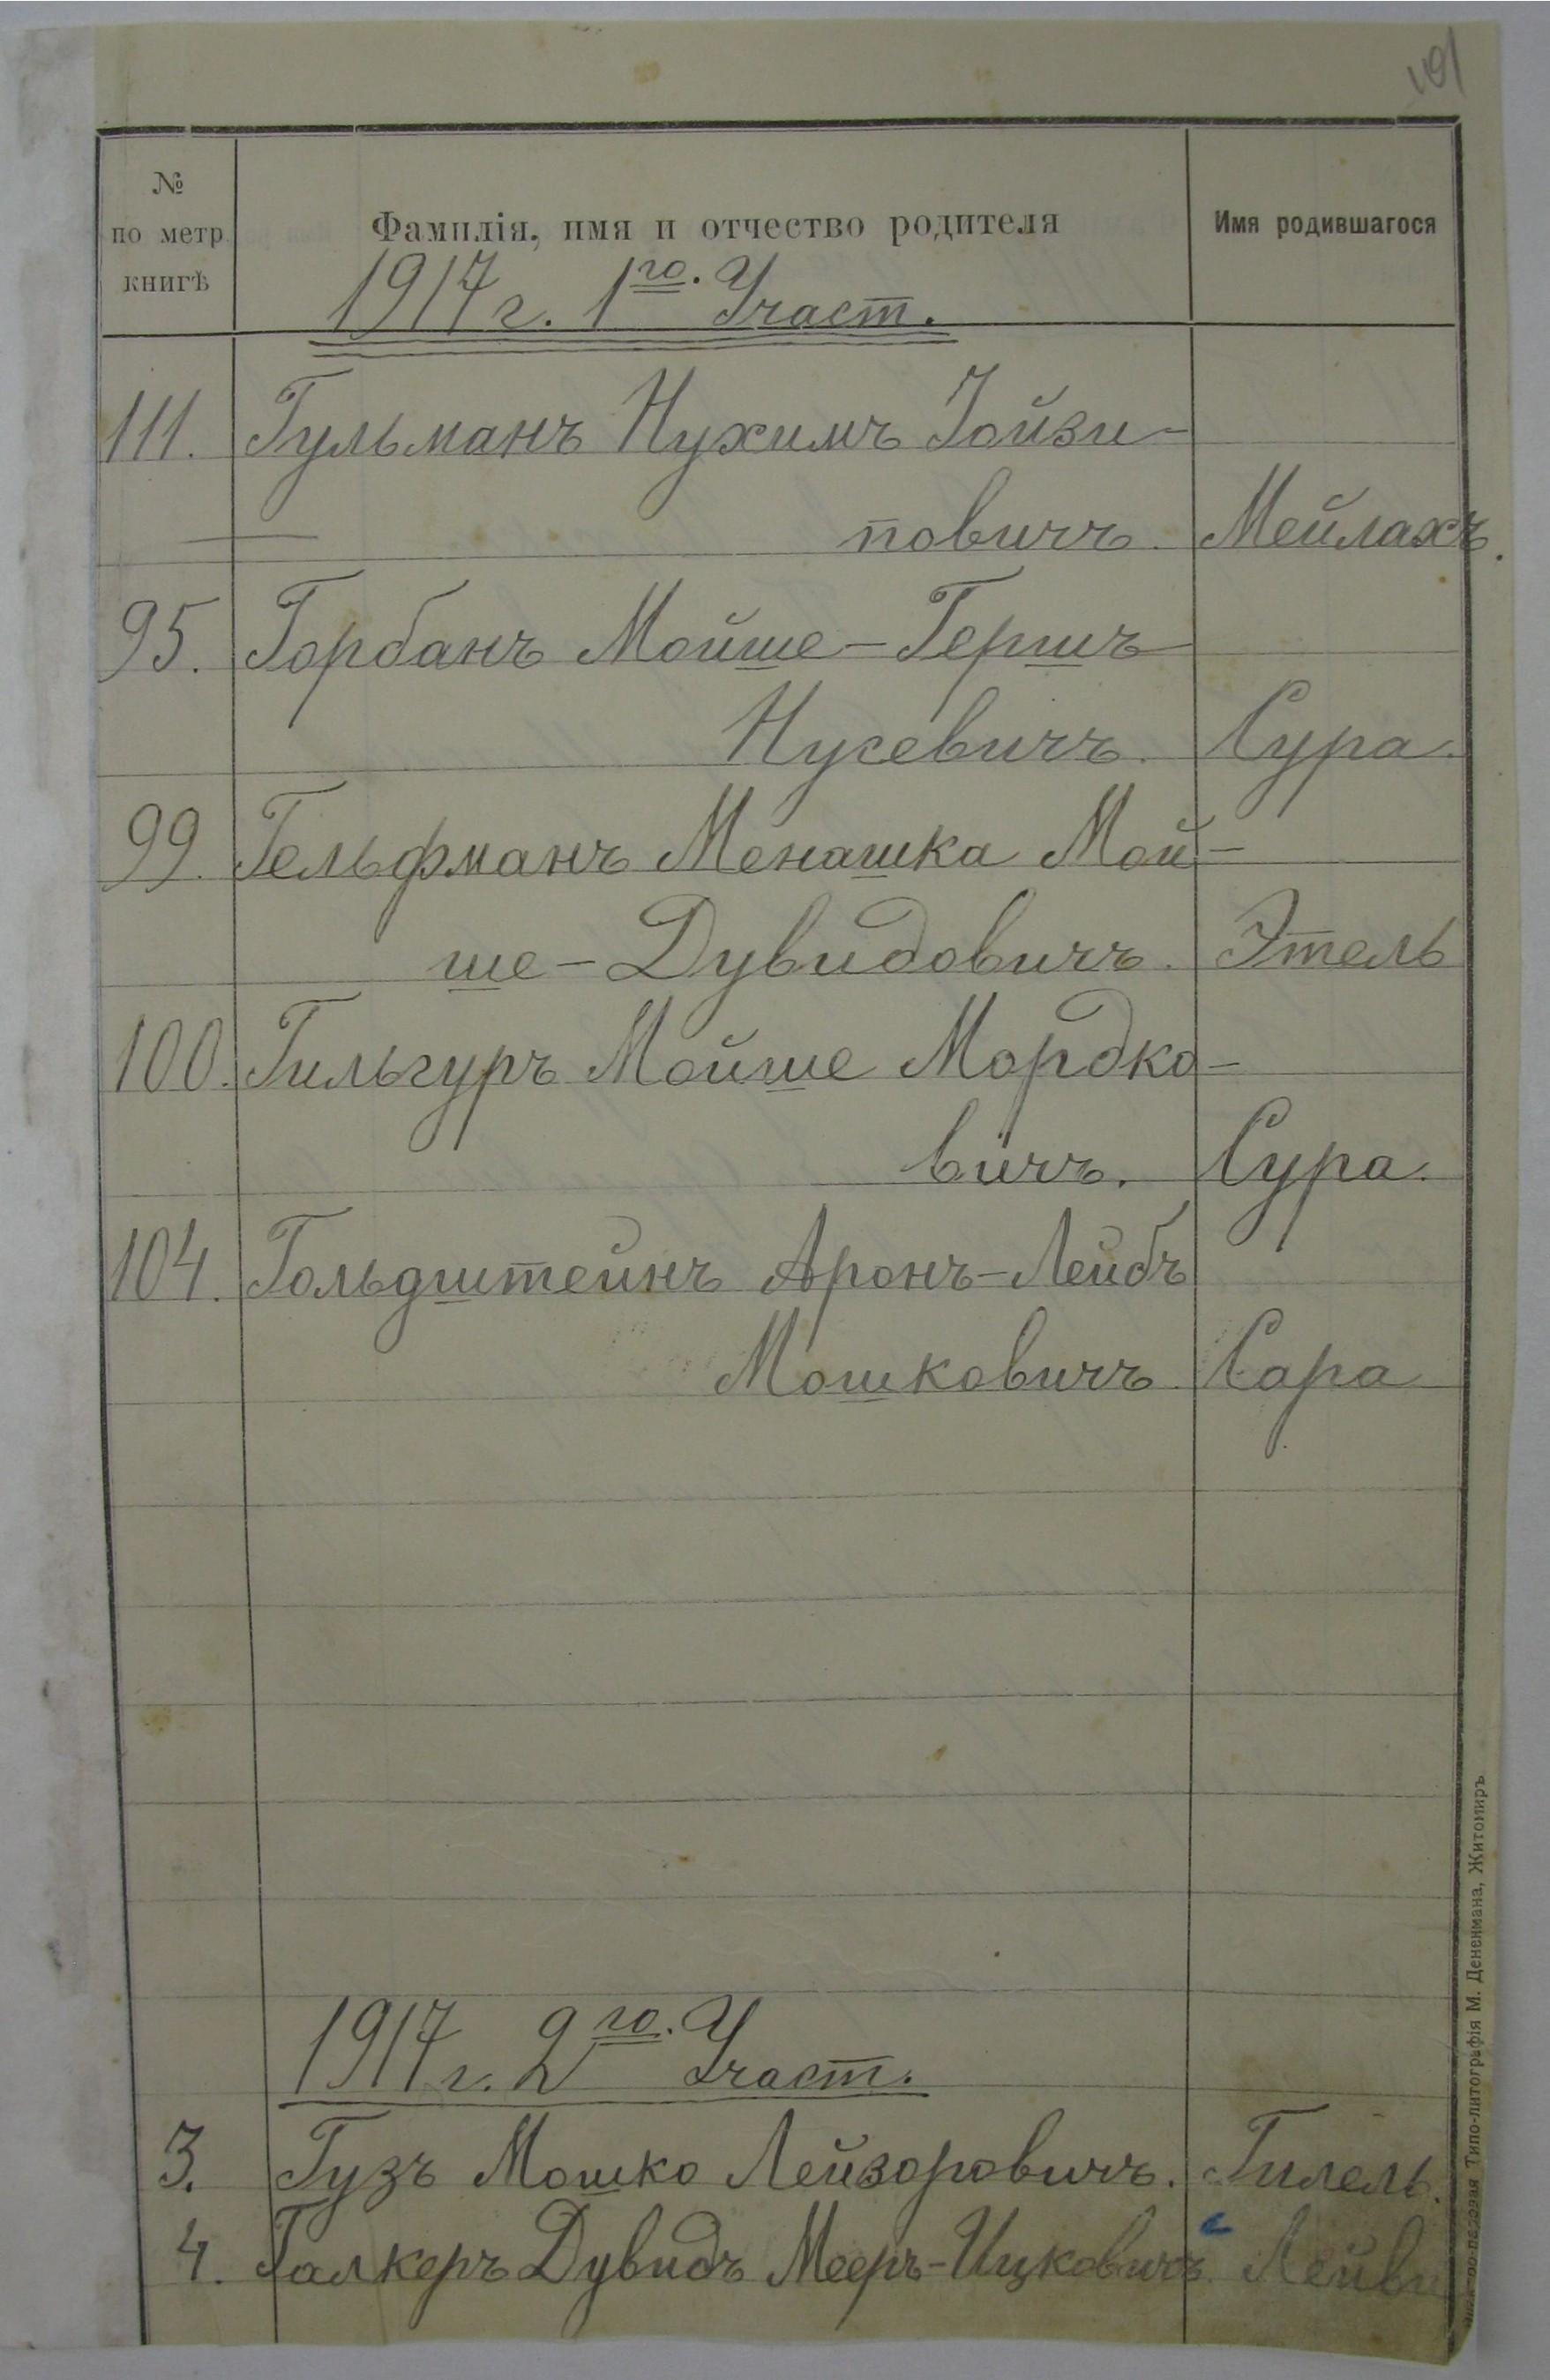 101
№ по метр. книгѣ
Фамилія, имя и отчество родителя
Имя родившагося
1917 г. 1го. Участ.
111. Гульманъ Нухимъ Іойзи-
повичъ. Мейлахъ.
95. Горбанъ Мойше-Гершъ
Нусевичъ. Сура.
99. Гельфманъ Менашка Мой-
ше-Дувидовичъ. Этель
100. Гильгуръ Мойше Мордко-
вичъ. Сура.
104. Гольдштейнъ Аронъ-Лейбъ
Мошковичъ. Сара
1917 г. 2го. Участ.
3. Гузъ Мошко Лейзоровичъ. Гилель.
4. Галкеръ Дувидъ Мееръ-Ицковичъ.
Типо-литографія М. Дененмана, Житомиръ